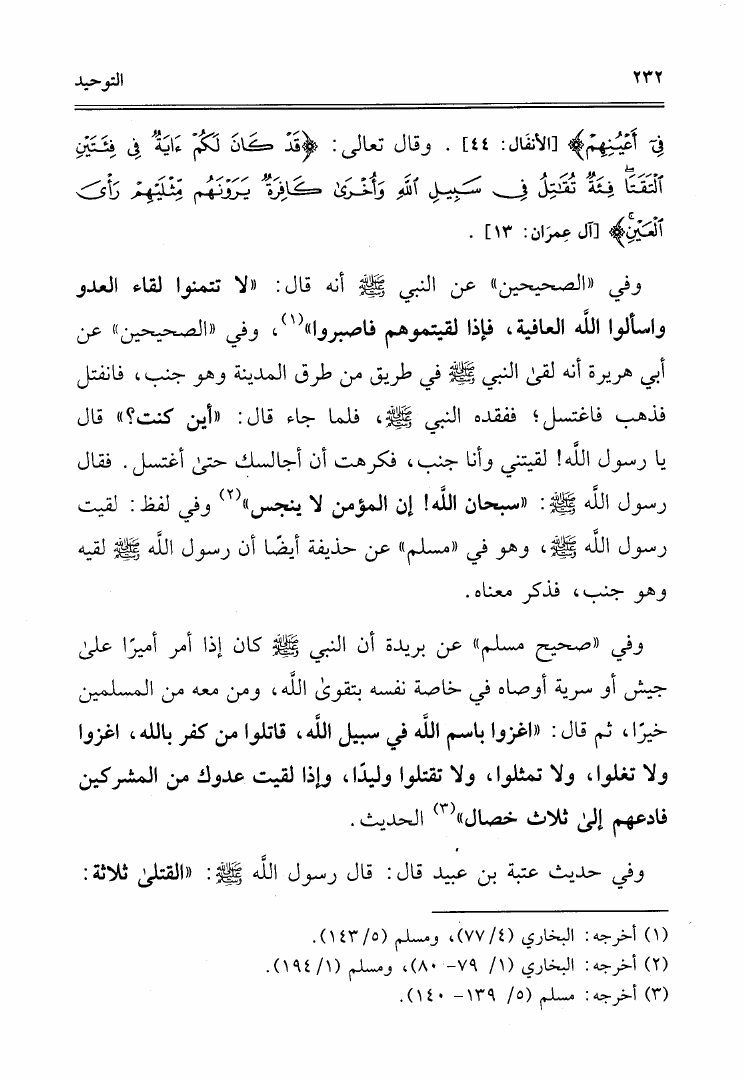 ٢٣٢ التوحيد
فِىٓ أَعْيُنِهِمْ﴾ [الأنفَال: ٤٤] . وقال تعالى: ﴿قَدْ كَانَ لَكُمْ ءَايَةٌ فِى فِئَتَيْنِ
ٱلْتَقَتَاۖ فِئَةٌ تُقَٰتِلُ فِى سَبِيلِ ٱللَّهِ وَأُخْرَىٰ كَافِرَةٌ يَرَوْنَهُم مِّثْلَيْهِمْ رَأْىَ
ٱلْعَيْنِۚ﴾ [آل عِمرَان: ١٣] .
وفي «الصحيحين» عن النبي ﷺ أنه قال: «لا تتمنوا لقاء العدو
واسألوا اللَّه العافية، فإذا لقيتموهم فاصبروا»(١)، وفي «الصحيحين» عن
أبي هريرة أنه لقىٰ النبي ﷺ في طريق من طرق المدينة وهو جنب، فانفتل
فذهب فاغتسل؛ ففقده النبي ﷺ، فلما جاء قال: «أين كنت؟» قال
يا رسول اللَّه! لقيتني وأنا جنب، فكرهت أن أجالسك حتىٰ أغتسل. فقال
رسول اللَّه ﷺ: «سبحان اللَّه! إن المؤمن لا ينجس»(٢) وفي لفظ: لقيت
رسول اللَّه ﷺ، وهو في «مسلم» عن حذيفة أيضًا أن رسول اللَّه ﷺ لقيه
وهو جنب، فذكر معناه.
وفي «صحيح مسلم» عن بريدة أن النبي ﷺ كان إذا أمر أميرًا علىٰ
جيش أو سرية أوصاه في خاصة نفسه بتقوىٰ اللَّه، ومن معه من المسلمين
خيرًا، ثم قال: «اغزوا باسم اللَّه في سبيل اللَّه، قاتلوا من كفر بالله، اغزوا
ولا تغلوا، ولا تمثلوا، ولا تقتلوا وليدًا، وإذا لقيت عدوك من المشركين
فادعهم إلىٰ ثلاث خصال»(٣) الحديث.
وفي حديث عتبة بن عبيد قال: قال رسول اللَّه ﷺ: «القتلىٰ ثلاثة:
(١) أخرجه: البخاري (٤/ ٧٧)، ومسلم (٥/ ١٤٣).
(٢) أخرجه: البخاري (١/ ٧٩- ٨٠)، ومسلم (١/ ١٩٤).
(٣) أخرجه: مسلم (٥/ ١٣٩- ١٤٠).